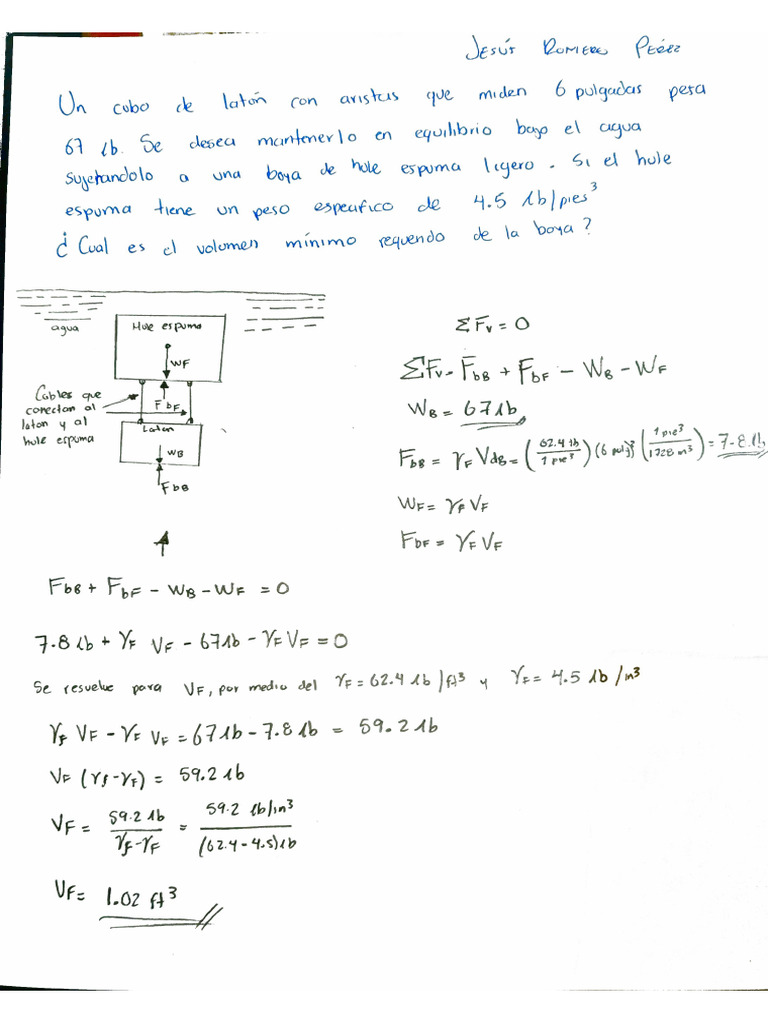 Jesús Romero Pérez
Un cubo de latón con aristas que miden 6 pulgadas pesa
67 lb. Se desea mantenerlo en equilibrio bajo el agua
sujetandolo a una boya de hule espuma ligero. Si el hule
espuma tiene un peso especifico de 4.5 lb/pies³
¿Cual es el volumen mínimo requerido de la boya?
agua
Hule espuma
WF
Cables que
conectan al
laton y al
hule espuma
FbF
Laton
WB
FbB
ΣFv = 0
ΣFv = FbB + FbF - WB - WF
WB = 67 lb
FbB = γf VdB = (62.4 lb / 1 pie³) (6 pulg)³ (1 pie³ / 1728 in³) = 7.8 lb
WF = γF VF
FbF = γF VF
FbB + FbF - WB - WF = 0
7.8 lb + γF VF - 67 lb - γF VF = 0
Se resuelve para VF, por medio del γF = 62.4 lb/ft³ y γF = 4.5 lb/in³
γf VF - γF VF = 67 lb - 7.8 lb = 59.2 lb
VF (γf - γF) = 59.2 lb
VF = 59.2 lb / γf - γF = 59.2 lb/in³ / (62.4 - 4.5) lb
VF = 1.02 ft³